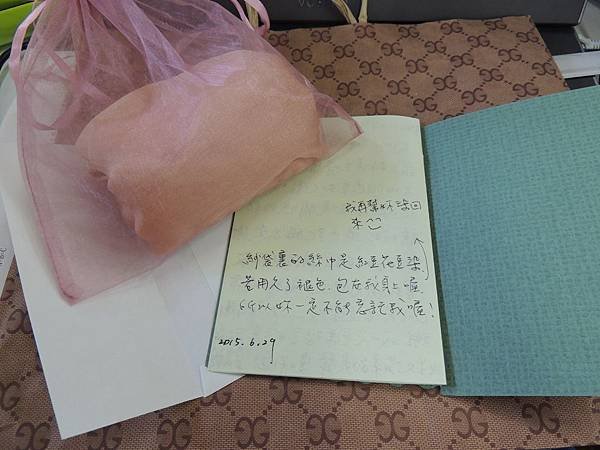 我再幫妳染回
來^^
紗袋裏的絲巾是紅豆花豆染,
若用久了褪色,包在我身上喔
所以妳一定不能忘記我喔!
2015.6.29